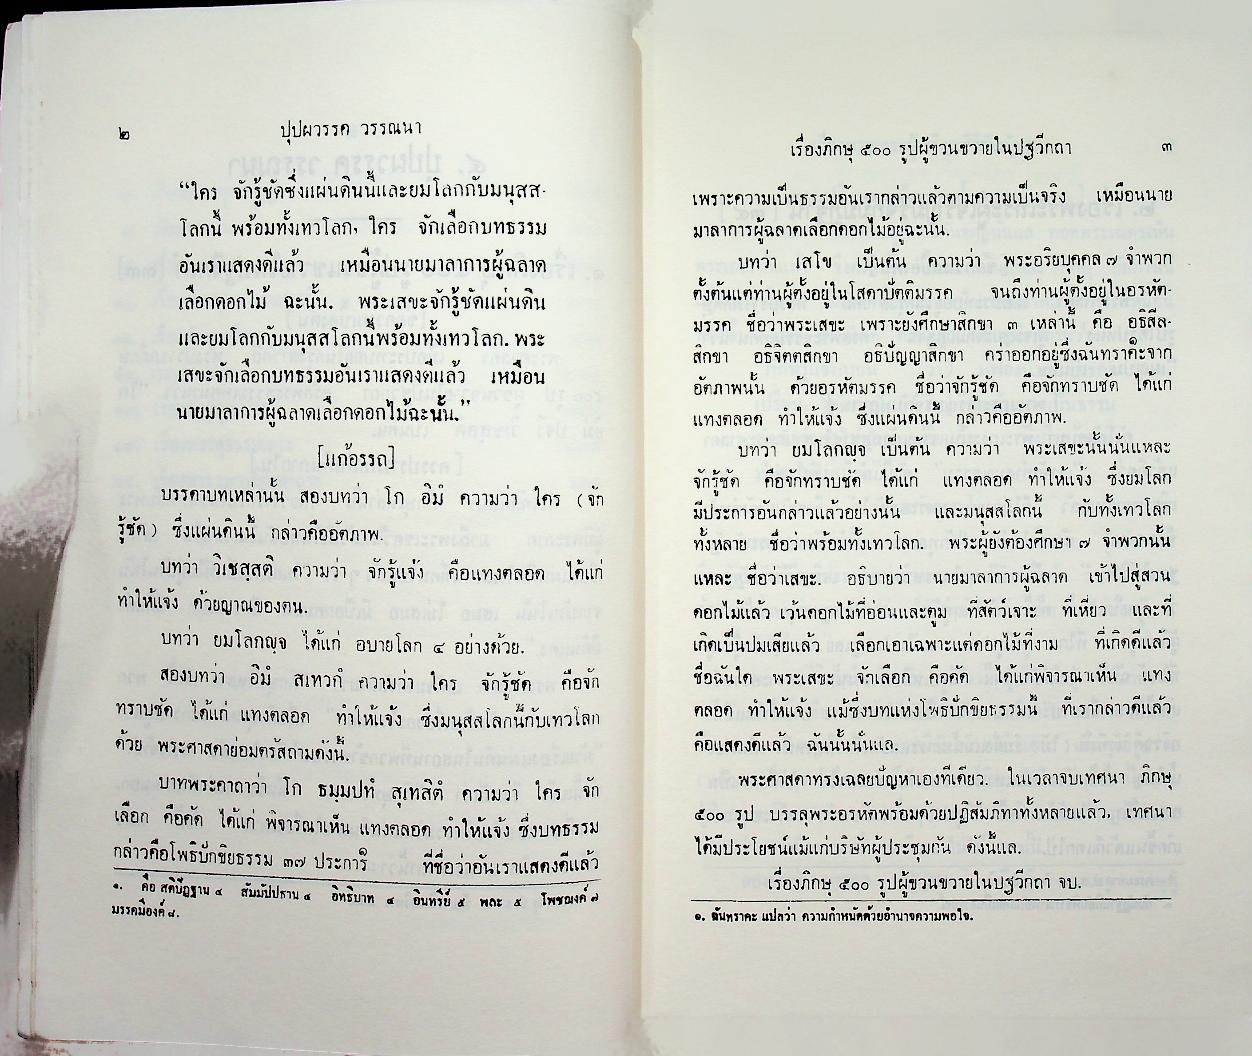 ๒
ปุปผวรรค วรรณนา
“ใคร จักรู้ชัดซึ่งแผ่นดินนี้และยมโลกกับมนุสส-
โลกนี้ พร้อมทั้งเทวโลก, ใคร จักเลือกบทธรรม
อันเราแสดงดีแล้ว เหมือนนายมาลาการผู้ฉลาด
เลือกดอกไม้ ฉะนั้น. พระเสขะจักรู้ชัดแผ่นดิน
และยมโลกกับมนุสสโลกนี้พร้อมทั้งเทวโลก. พระ
เสขะจักเลือกบทธรรมอันเราแสดงดีแล้ว เหมือน
นายมาลาการผู้ฉลาดเลือกดอกไม้ฉะนั้น.”
[แก้อรรถ]
บรรดาบทเหล่านั้น สองบทว่า โก อิมํ ความว่า ใคร (จัก
รู้ชัด) ซึ่งแผ่นดินนี้ กล่าวคืออัตภาพ.
บทว่า วิเชสฺสติ ความว่า จักรู้แจ้ง คือแทงตลอด ได้แก่
ทำให้แจ้ง ด้วยญาณของตน.
บทว่า ยมโลกญฺจ ได้แก่ อบายโลก ๔ อย่างด้วย.
สองบทว่า อิมํ สเทวกํ ความว่า ใคร จักรู้ชัด คือจัก
ทราบชัด ได้แก่ แทงตลอด ทำให้แจ้ง ซึ่งมนุสสโลกนี้กับเทวโลก
ด้วย พระศาสดาย่อมตรัสถามดังนี้.
บาทพระคาถาว่า โก ธมฺมปทํ สุเทสิตํ ความว่า ใคร จัก
เลือก คือคัด ได้แก่ พิจารณาเห็น แทงตลอด ทำให้แจ้ง ซึ่งบทธรรม
กล่าวคือโพธิปักขิยธรรม ๓๗ ประการ๑ ที่ชื่อว่าอันเราแสดงดีแล้ว
๑. คือ สติปัฏฐาน ๔ สัมมัปปธาน ๔ อิทธิบาท ๔ อินทรีย์ ๕ พละ ๕ โพชฌงค์ ๗
มรรคมีองค์ ๘.
เรื่องภิกษุ ๕๐๐ รูปผู้ขวนขวายในปฐวีกถา
๓
เพราะความเป็นธรรมอันเรากล่าวแล้วตามความเป็นจริง เหมือนนาย
มาลาการผู้ฉลาดเลือกดอกไม้อยู่ฉะนั้น.
บทว่า เสโข เป็นต้น ความว่า พระอริยบุคคล ๗ จำพวก
ตั้งต้นแต่ท่านผู้ตั้งอยู่ในโสดาปัตติมรรค จนถึงท่านผู้ตั้งอยู่ในอรหัต-
มรรค ชื่อว่าพระเสขะ เพราะยังศึกษาสิกขา ๓ เหล่านี้ คือ อธิสีล-
สิกขา อธิจิตตสิกขา อธิปัญญาสิกขา คร่าออกอยู่ซึ่งฉันทราคะ๑จาก
อัตภาพนั้น ด้วยอรหัตมรรค ชื่อว่าจักรู้ชัด คือจักทราบชัด ได้แก่
แทงตลอด ทำให้แจ้ง ซึ่งแผ่นดินนี้ กล่าวคืออัตภาพ.
บทว่า ยมโลกญฺจ เป็นต้น ความว่า พระเสขะนั้นนั่นแหละ
จักรู้ชัด คือจักทราบชัด ได้แก่ แทงตลอด ทำให้แจ้ง ซึ่งยมโลก
มีประการอันกล่าวแล้วอย่างนั้น และมนุสสโลกนี้ กับทั้งเทวโลก
ทั้งหลาย ชื่อว่าพร้อมทั้งเทวโลก. พระผู้ยังต้องศึกษา ๗ จำพวกนั้น
แหละ ชื่อว่าเสขะ. อธิบายว่า นายมาลาการผู้ฉลาด เข้าไปสู่สวน
ดอกไม้แล้ว เว้นดอกไม้ที่อ่อนและตูม ที่สัตว์เจาะ ที่เหี่ยว และที่
เกิดเป็นปมเสียแล้ว เลือกเอาเฉพาะแต่ดอกไม้ที่งาม ที่เกิดดีแล้ว
ชื่อฉันใด พระเสขะ จักเลือก คือคัด ได้แก่พิจารณาเห็น แทง
ตลอด ทำให้แจ้ง แม้ซึ่งบทแห่งโพธิปักขิยธรรมนี้ ที่เรากล่าวดีแล้ว
คือแสดงดีแล้ว ฉันนั้นนั่นแล.
พระศาสดาทรงเฉลยปัญหาเองทีเดียว. ในเวลาจบเทศนา ภิกษุ
๕๐๐ รูป บรรลุพระอรหัตพร้อมด้วยปฏิสัมภิทาทั้งหลายแล้ว. เทศนา
ได้มีประโยชน์แม้แก่บริษัทผู้ประชุมกัน ดังนี้แล.
เรื่องภิกษุ ๕๐๐ รูปผู้ขวนขวายในปฐวีกถา จบ.
๑. ฉันทราคะ แปลว่า ความกำหนัดด้วยอำนาจความพอใจ.